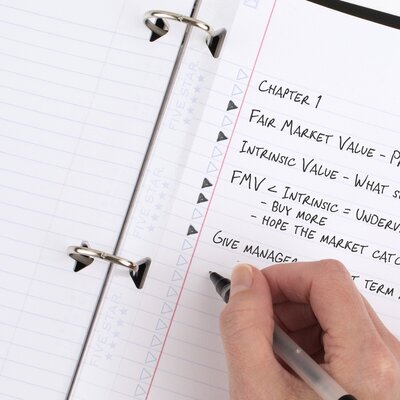 CHAPTER 1
FAIR MARKET VALUE - 
INTRINSIC VALUE - WHAT
FMV < INTRINSIC = UNDERV
- BUY MORE
- HOPE THE MARKET CATC
GIVE MANAGE
TERM
FIVE STAR
FIVE STAR
FIVE STAR